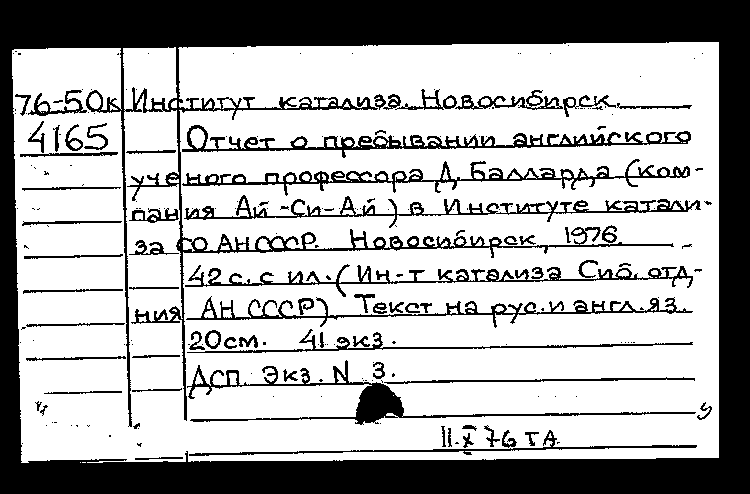 76-50к Институт катализа. Новосибирск.
4165 Отчет о пребывании английского
ученого профессора Д. Балларда (ком-
пания Ай-Си-Ай) в Институте катали-
за СО АН СССР. Новосибирск, 1976.
42 с. с ил. (Ин-т катализа Сиб. отд-
ния АН СССР). Текст на рус. и англ. яз.
20см. 41 экз.
ДСП. Экз. N 3.
II.X 76 ТА